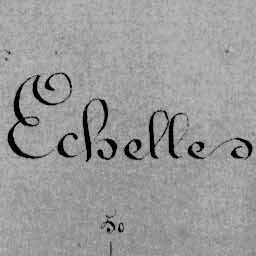 Echelles
50